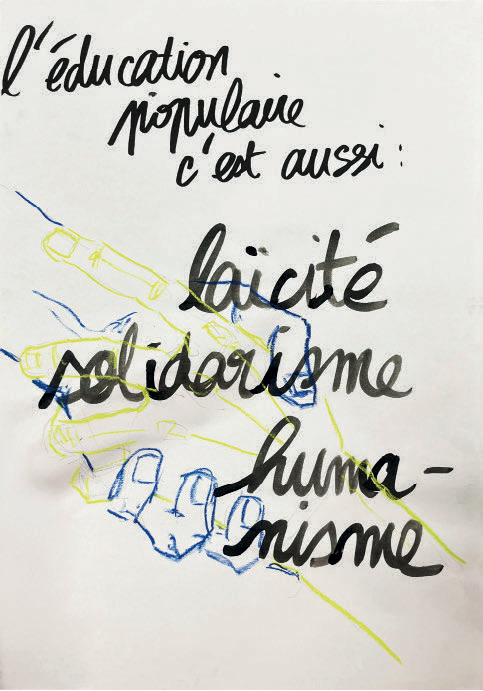 l'éducation
populaire
c'est aussi :
laïcité
solidarisme
huma-
nisme